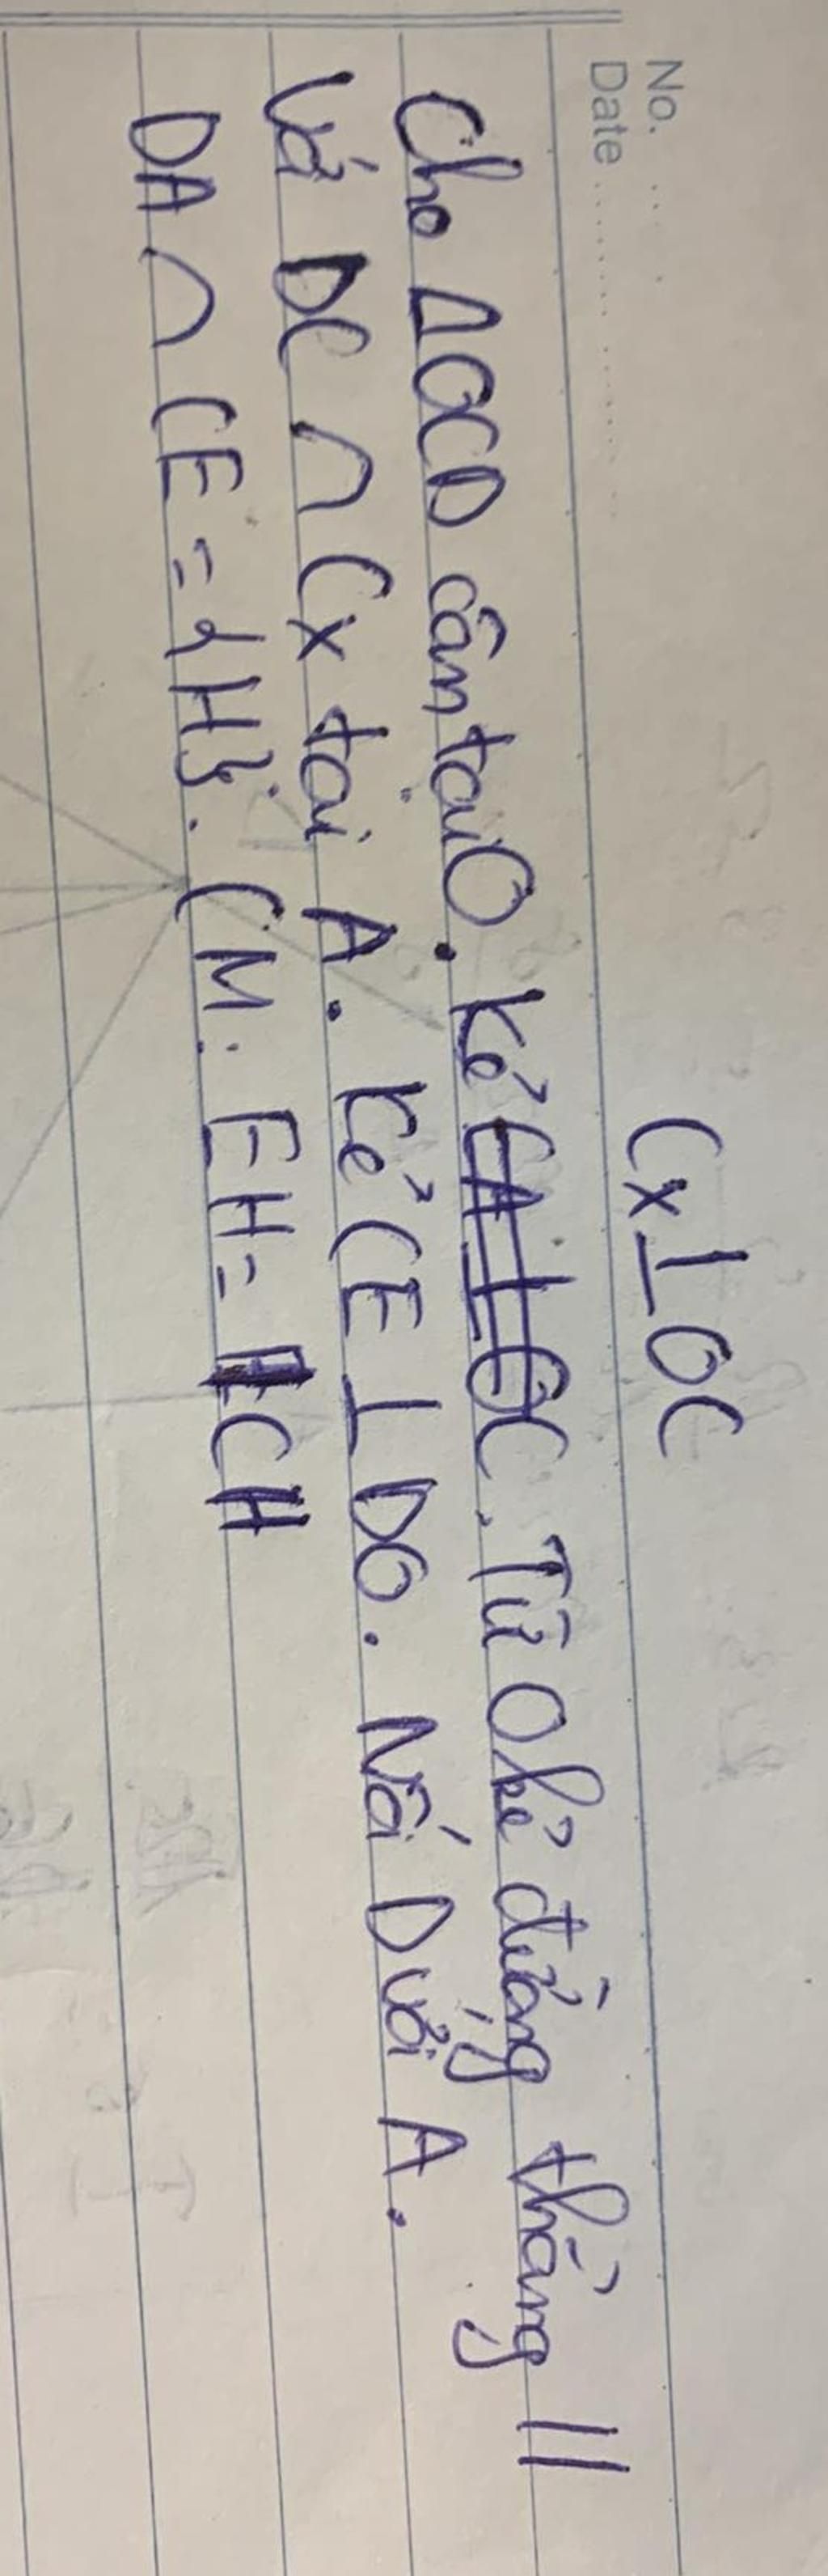 No. ....
Date ..................
Cx ⊥ OC
Cho ΔOCD cân tại O. Kẻ CA ⊥ OC. Từ O kẻ đường thẳng //
với DC ∩ Cx tại A. Kẻ CE ⊥ DO. Nối D với A.
DA ∩ CE = {H}. CM: EH = CH